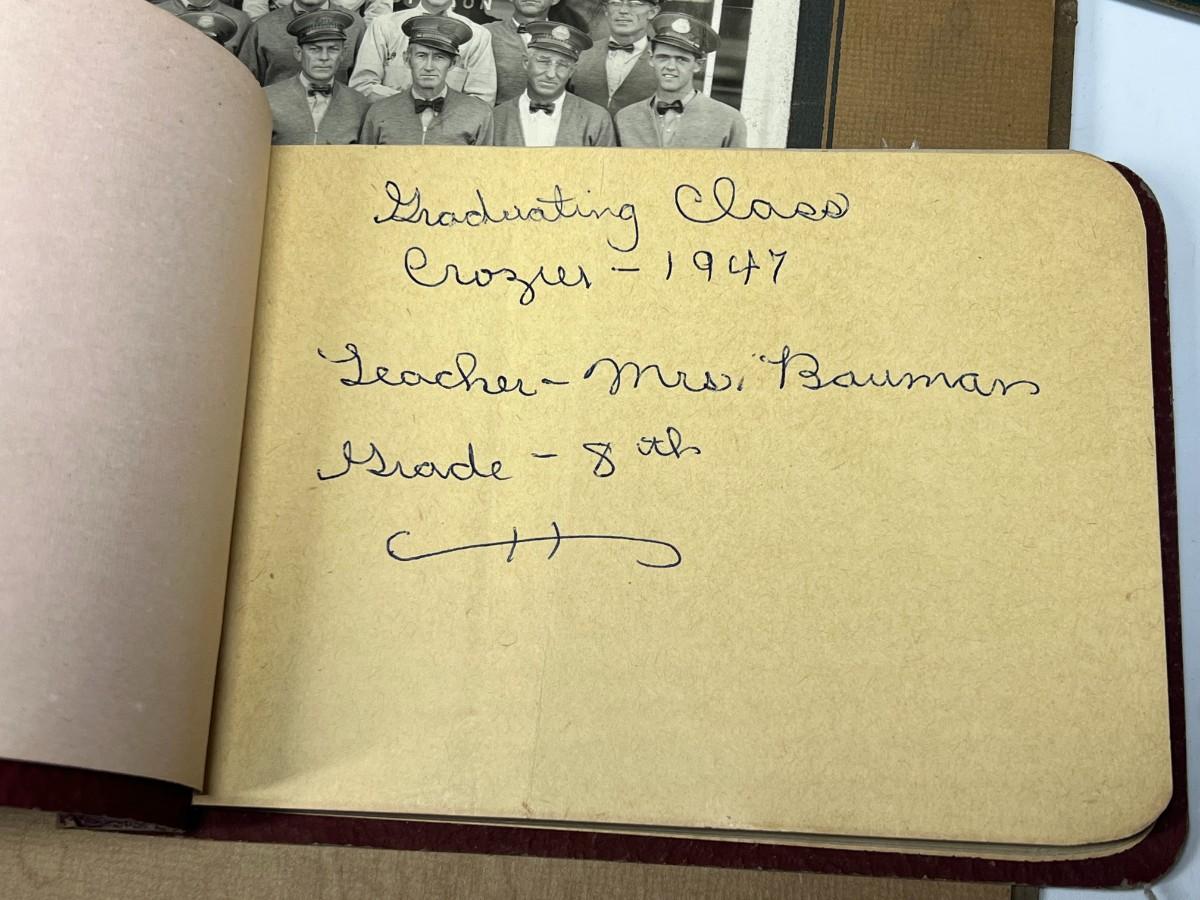 Graduating Class
Crozier - 1947
Teacher - Mrs. Bauman
Grade - 8th